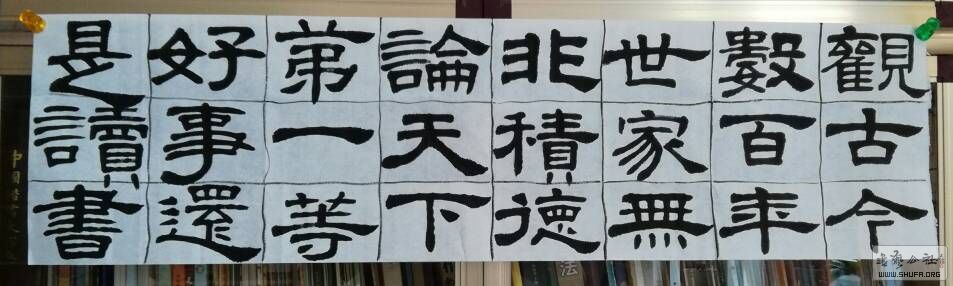 觀古今
數百年
世家無
非積德
論天下
弟一等
好事還
是讀書
法
WWW.SHUFA.ORG